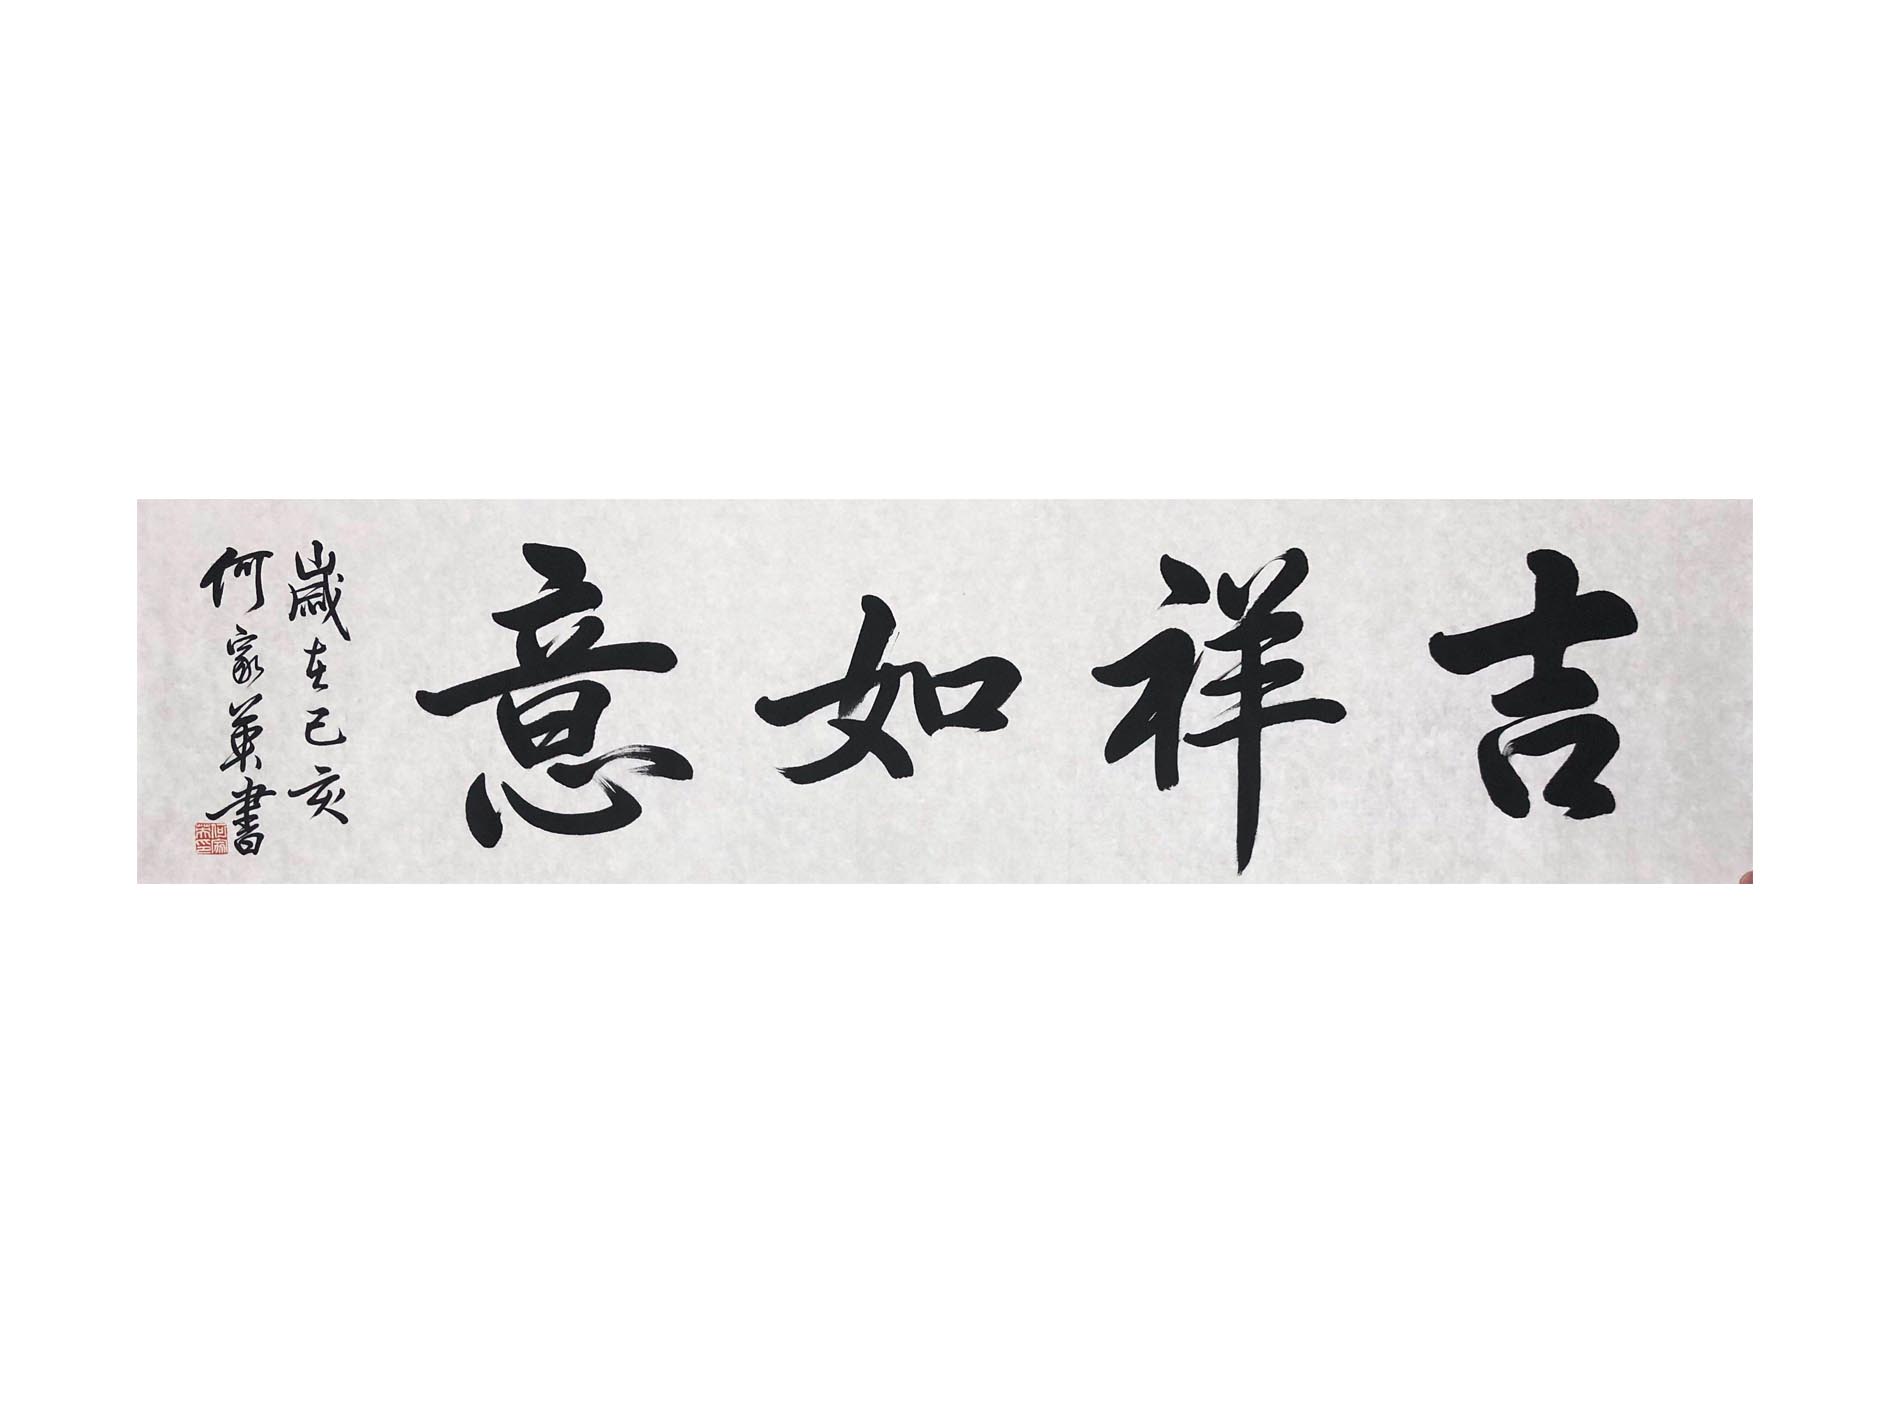 吉祥如意
歲在己亥
何家英書